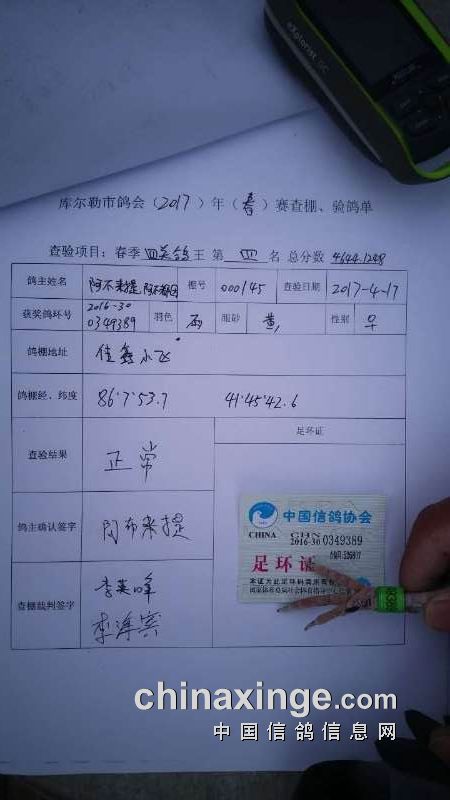 eXplorist GC
库尔勒市鸽会（2017）年（春）赛查棚、验鸽单
查验项目：春季 四关鸽王 第 四 名 总分数 4644.1248
鸽主姓名 阿不来提 棚号 000145 查验日期 2017-4-17
获奖鸽环号 2016-30 0349389 羽色 雨 眼砂 黄 性别 早
鸽棚地址 佳鑫小区
鸽棚经、纬度 86°7'53.7 41°45'42.6
足环证
查验结果 正常
鸽主确认签字 阿布来提
查棚裁判签字 李英峰
李海宾
中国信鸽协会
CHINA CHN
2016-30 0349389
足环证
chinaxinge.com
中国信鸽信息网